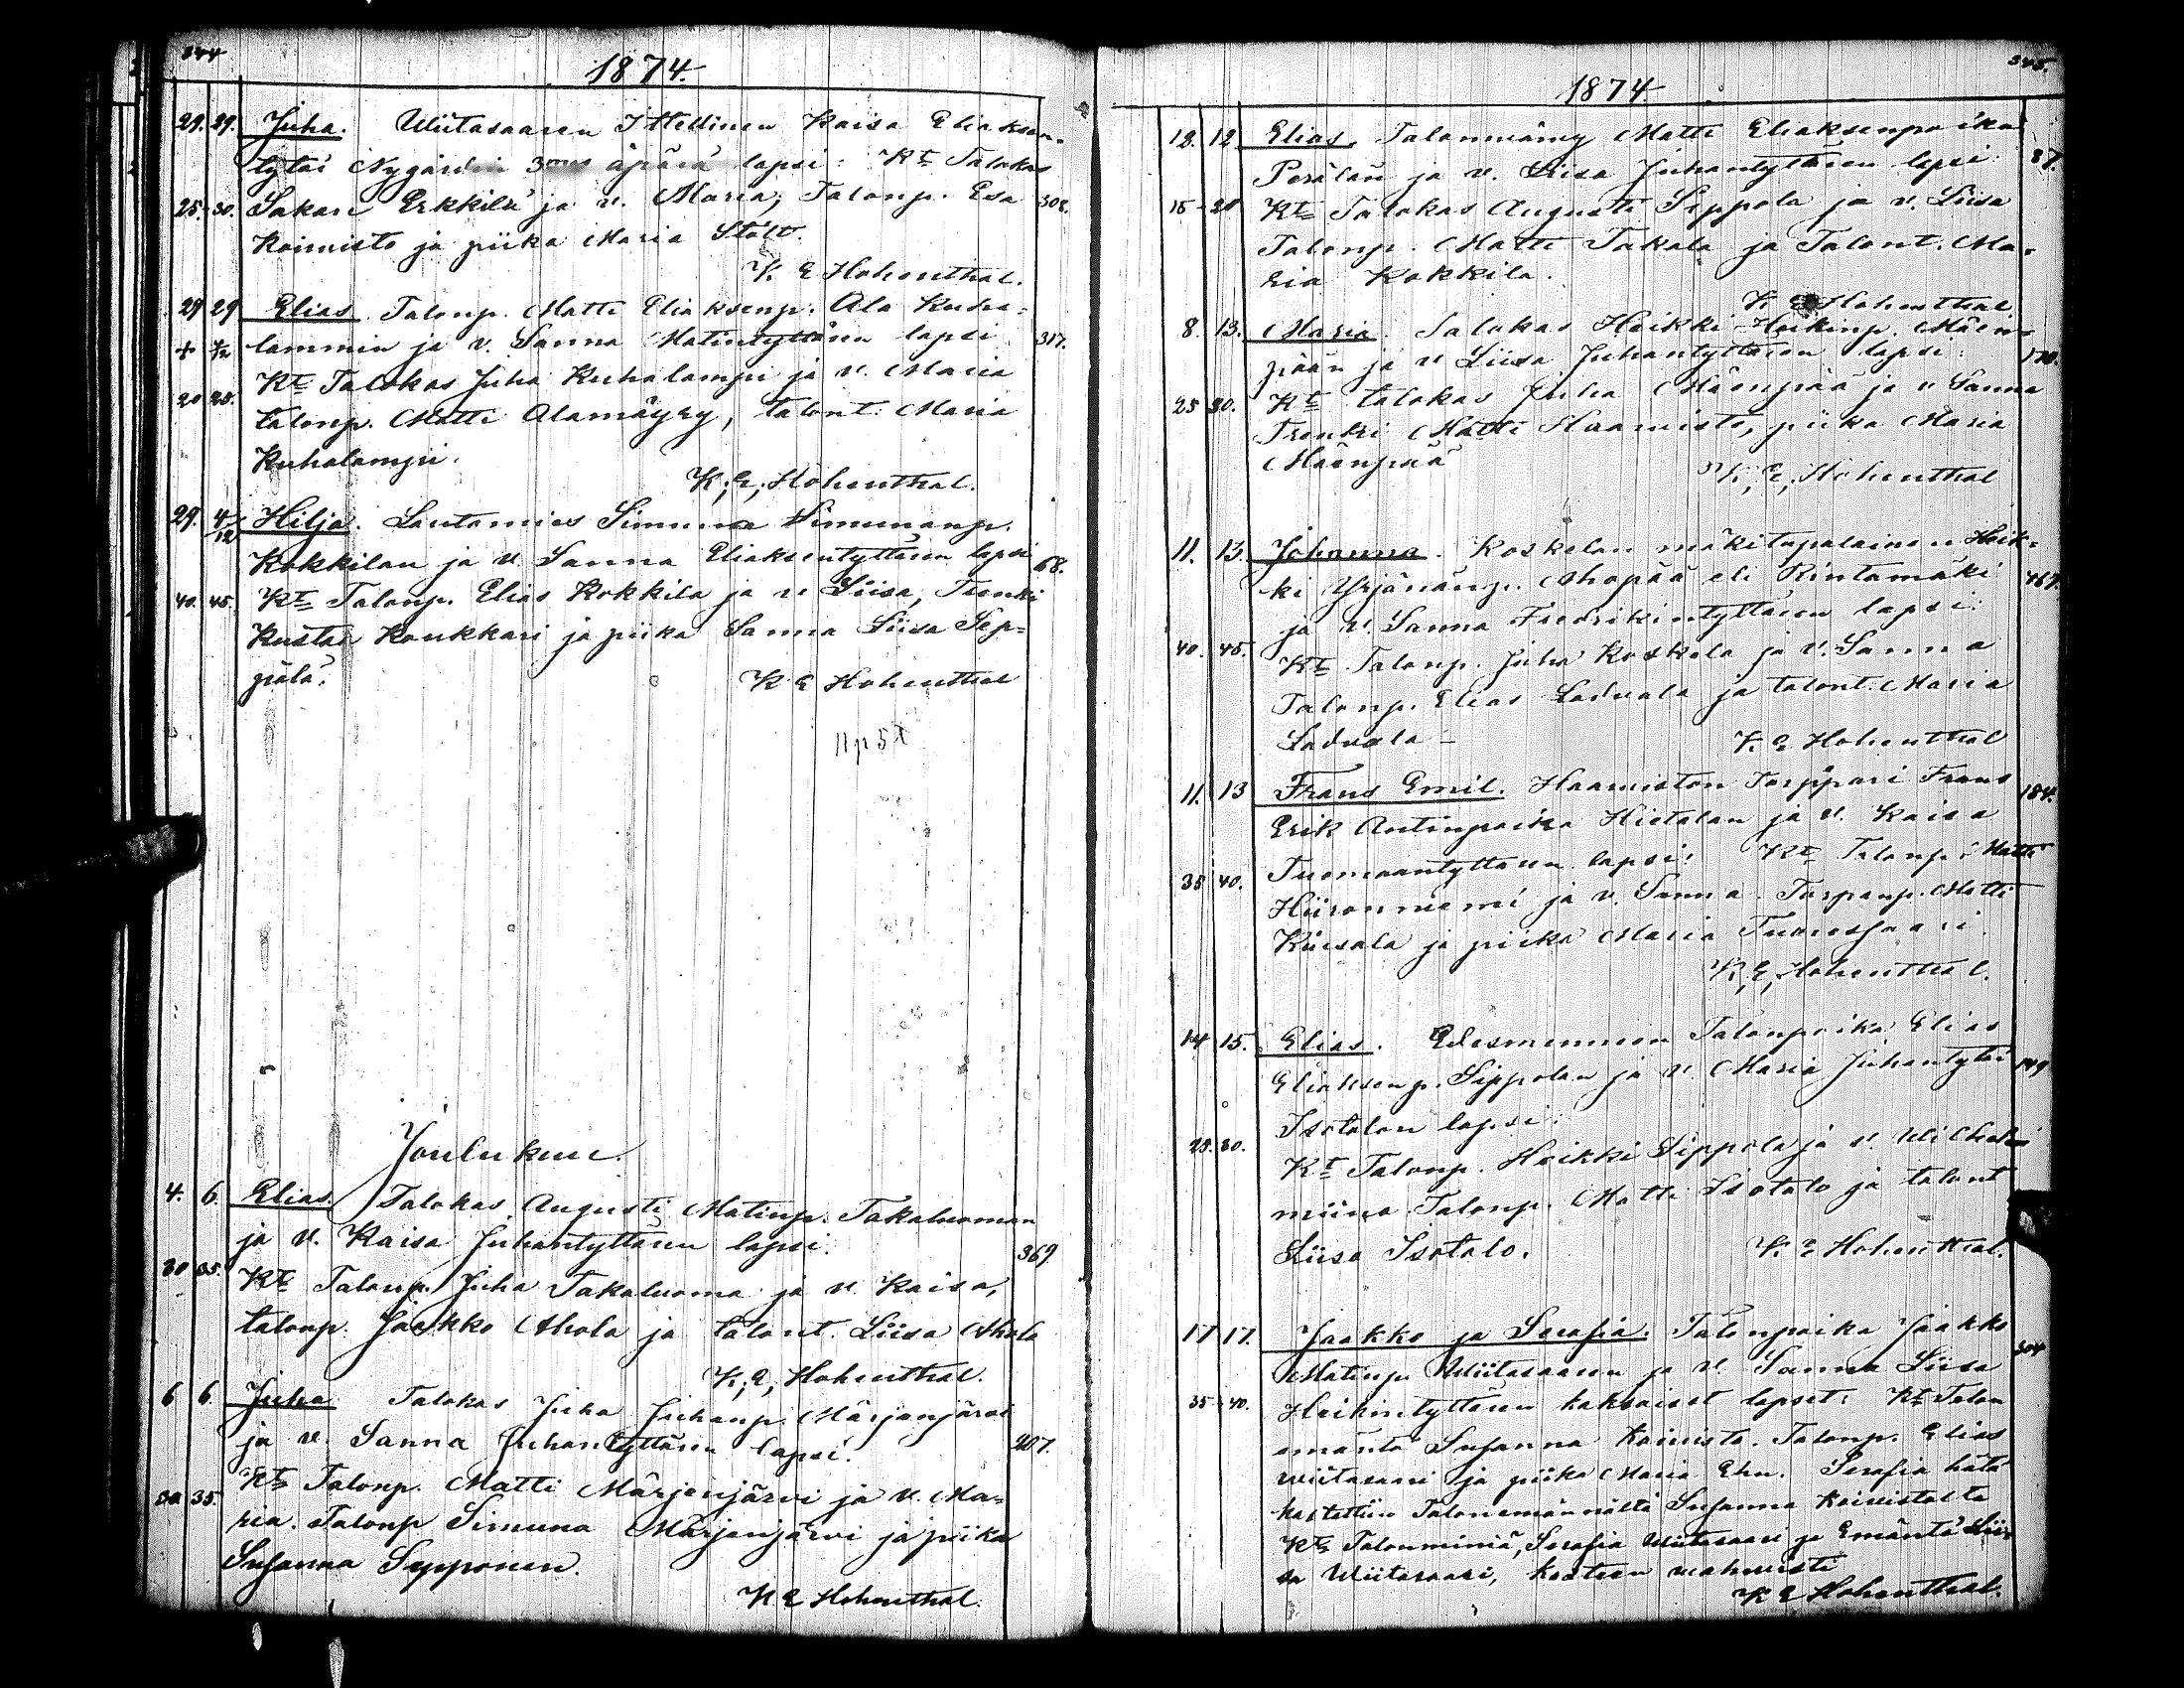 344
1874.
29. 29. Juha. Wiitasaaren Ittellinen Kaisa Eliaksen-
tytär Nygårdin 3mas äpärä lapsi: Kt Talokas
25-30. Sakari Erkkilä ja v. Maria, Talonp. Esa 308.
Koivisto ja piika Maria Stolt.
K E Hohenthal.
29 29 Elias. Talonp. Matti Eliaksenp. Ala Kuha=
+ 4/12 lammin ja v. Sanna Matintyttären lapsi 317.
Kt Talokas Juha Kuhalampi ja v. Maria
20 25. talonp. Matti Alamäyry, talont. Maria
Kuhalampi.
K, E, Hohenthal.
29. 4/12 Hilja. Lautamies Simuna Simunanp.
Kokkilan ja v. Sanna Eliaksentyttären lapsi 68.
40. 45. Kt Talonp. Elias Kokkila ja v Liisa, Trenki
Kustaa Koukkari ja piika Sanna Liisa Sep=
pälä.
K E Hohenthal
Joulukuu.
4. 6. Elias. Talokas Augusti Matinp. Takaluoman
ja v. Kaisa Juhantyttären lapsi. 369.
30 35. Kt Talonp. Juha Takaluoma ja v. Kaisa,
talonp. Jaakko Ahola ja talont. Liisa Ahola
K, E, Hohenthal.
6 6. Juha. Talokas Juha Juhanp. Märjenjärvi
ja v. Sanna Juhantyttären lapsi. 207.
Kt Talonp. Matti Märjenjärvi ja v. Ma=
30. 35. ria. Talonp Simuna Märjenjärvi ja piika
Susanna Sepponen.
K E Hohenthal.
345.
1874
12. 12 Elias. Talonvävy Matti Eliaksenpoika
Perälän ja v. Liisa Juhantyttären lapsi: 87.
15-20 Kt Talokas Augusti Sippola ja v. Liisa
Talonp. Matti Takala ja Talont. Ma=
ria Kokkila.
K E Hohenthal
8. 13. Maria. Talokas Heikki Heikinp. Mäen=
pään ja v Liisa Juhantyttären lapsi: 170.
25 30. Kt talokas Juha Mäenpää ja v Sanna
Trenki Matti Haavisto, piika Maria
Mäenpää
K, E, Hohenthal
11. 13. Johanna. Koskelan mäkitupalainen Heik=
ki Yrjänänp. Ahopää eli Rintamäki 467.
ja v. Sanna Fredrikintyttären lapsi:
40. 45. Kt Talonp. Juha Koskela ja v. Sanna
Talonp. Elias Laduala ja talont. Maria
Laduala -
K. E Hohenthal
11. 13 Frans Emil. Haaviston Torppari Frans 184.
Erik Antinpoika Hietalan ja v. Kaisa
Tuomaantyttären lapsi: Kt Talonp. Matti
35 40. Hiironniemi ja v. Sanna. Torpanp. Matti
ja piika Maria
K, E, Hohenthal.
14 15. Elias. Edesmenneen Talonpoika Elias
Eliaksenp. Sippolan ja v. Maria Juhantytär 149
Isotalon lapsi:
25. 30. Kt Talonp. Heikki Sippola ja v. Wilhel=
miina Talonp. Matti Isotalo ja talont
Liisa Isotalo.
K. E Hohenthal.
17 17. Jaakko ja Serafia. Talonpoika Jaakko 304
Matinp. Wiitasaaren ja v. Sanna Liisa
35-40. Heikintyttären kaksoiset lapset: Kt Talon
emäntä Susanna Koivisto. Talonp. Elias
Wiitasaari ja piika Maria Ehn. Serafia hätä
kastettiin Talonemännältä Susanna Koivistolta
Kt Talonminiä, Serafia Wiitasaari ja Emäntä Lii=
sa Wiitasaari, kasteen vahvisti
K E Hohenthal.